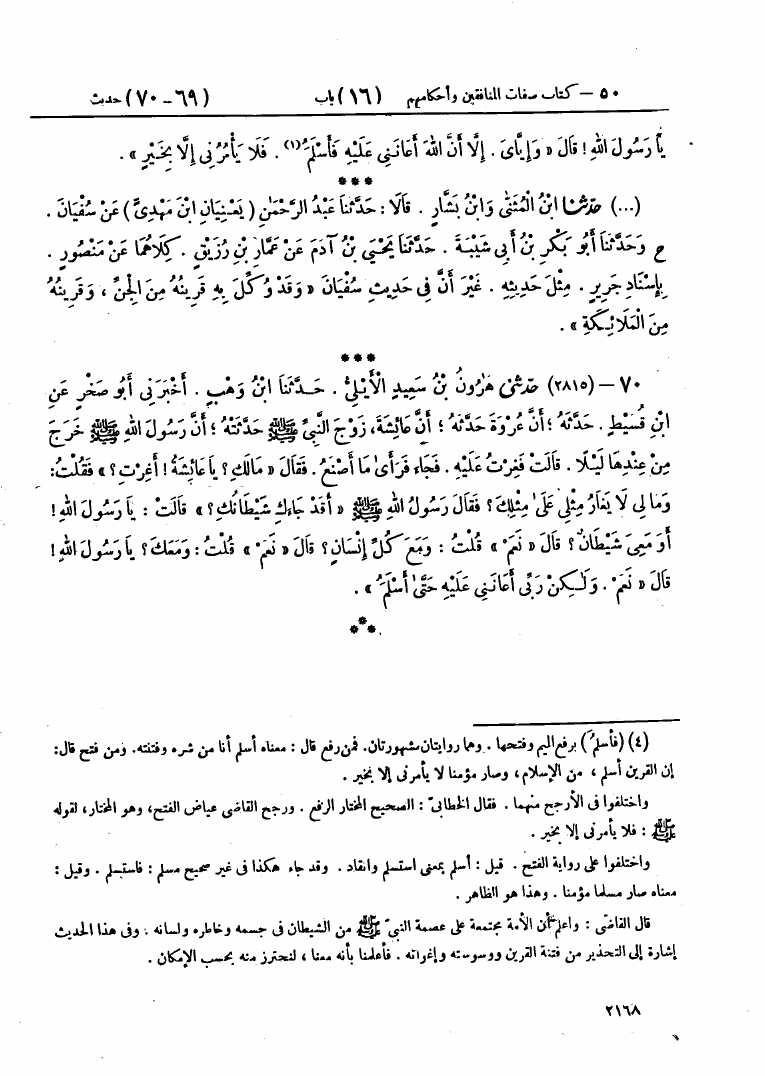 ٥٠ – كتاب صفات المنافقين وأحكامهم (١٦) باب (٦٩-٧٠) حديث
يَا رَسُولَ اللهِ! قَالَ «وَإِيَّاىَ. إِلَّا أَنَّ اللهَ أَعَانَنِى عَلَيْهِ فَأَسْلَمَُ(١). فَلَا يَأْمُرُنِى إِلَّا بِخَيْرٍ».
***
(...) حَدَّثَنَا ابْنُ الْمُثَنَّىٰ وَابْنُ بَشَّارٍ. قَالَا: حَدَّثَنَا عَبْدُ الرَّحْمَٰنِ (يَعْنِيَانِ ابْنَ مَهْدِىٍّ) عَنْ سُفْيَانَ.
ح وَحَدَّثَنَا أَبُو بَكْرِ بْنُ أَبِى شَيْبَةَ. حَدَّثَنَا يَحْيَىٰ بْنُ آدَمَ عَنْ عَمَّارِ بْنِ رُزَيْقٍ. كِلَاهُمَا عَنْ مَنْصُورٍ.
بِإِسْنَادِ جَرِيرٍ. مِثْلَ حَدِيثِهِ. غَيْرَ أَنَّ فِى حَدِيثِ سُفْيَانَ «وَقَدْ وُكِّلَ بِهِ قَرِينُهُ مِنَ الْجِنِّ، وَقَرِينُهُ
مِنَ الْمَلَائِكَةِ».
***
٧٠ – (٢٨١٥) حَدَّثَنِى هَٰرُونُ بْنُ سَعِيدٍ الْأَيْلِىُّ. حَدَّثَنَا ابْنُ وَهْبٍ. أَخْبَرَنِى أَبُو صَخْرٍ عَنِ
ابْنِ قُسَيْطٍ. حَدَّثَهُ؛ أَنَّ عُرْوَةَ حَدَّثَهُ؛ أَنَّ عَائِشَةَ، زَوْجَ النَّبِىِّ ﷺ حَدَّثَتْهُ؛ أَنَّ رَسُولَ اللهِ ﷺ خَرَجَ
مِنْ عِنْدِهَا لَيْلًا. قَالَتْ فَغِرْتُ عَلَيْهِ. فَجَاءَ فَرَأَىٰ مَا أَصْنَعُ. فَقَالَ «مَالَكِ؟ يَا عَائِشَةُ! أَغِرْتِ؟» فَقُلْتُ:
وَمَا لِى لَا يَغَارُ مِثْلِى عَلَىٰ مِثْلِكَ؟ فَقَالَ رَسُولُ اللهِ ﷺ «أَقَدْ جَاءَكِ شَيْطَانُكِ؟» قَالَتْ: يَا رَسُولَ اللهِ!
أَوَ مَعِىَ شَيْطَانٌ؟ قَالَ «نَعَمْ» قُلْتُ: وَمَعَ كُلِّ إِنْسَانٍ؟ قَالَ «نَعَمْ» قُلْتُ: وَمَعَكَ؟ يَا رَسُولَ اللهِ!
قَالَ «نَعَمْ. وَلَٰكِنْ رَبِّى أَعَانَنِى عَلَيْهِ حَتَّىٰ أَسْلَمَُ».
***
(٤) (فأسلمَُ) برفع الميم وفتحها. وهما روايتان مشهورتان. فمن رفع قال: معناه أسلم أنا من شره وفتنته. ومن فتح قال:
إن القرين أسلم، من الإسلام، وصار مؤمنا لا يأمرنى إلا بخير.
واختلفوا فى الأرجح منهما. فقال الخطابىّ: الصحيح المختار الرفع. ورجح القاضى عياض الفتح، وهو المختار، لقوله
ﷺ: فلا يأمرنى إلا بخير.
واختلفوا على رواية الفتح. قيل: أسلم بمعنى استسلم وانقاد. وقد جاء هكذا فى غير صحيح مسلم: فاستسلم. وقيل:
معناه صار مسلما مؤمنا. وهذا هو الظاهر.
قال القاضى: واعلم أن الأمة مجتمعة على عصمة النبىّ ﷺ من الشيطان فى جسمه وخاطره ولسانه. وفى هذا الحديث
إشارة إلى التحذير من فتنة القرين ووسوسته وإغوائه. فأعلمنا بأنه معنا، لنحترز منه بحسب الإمكان.
٢١٦٨